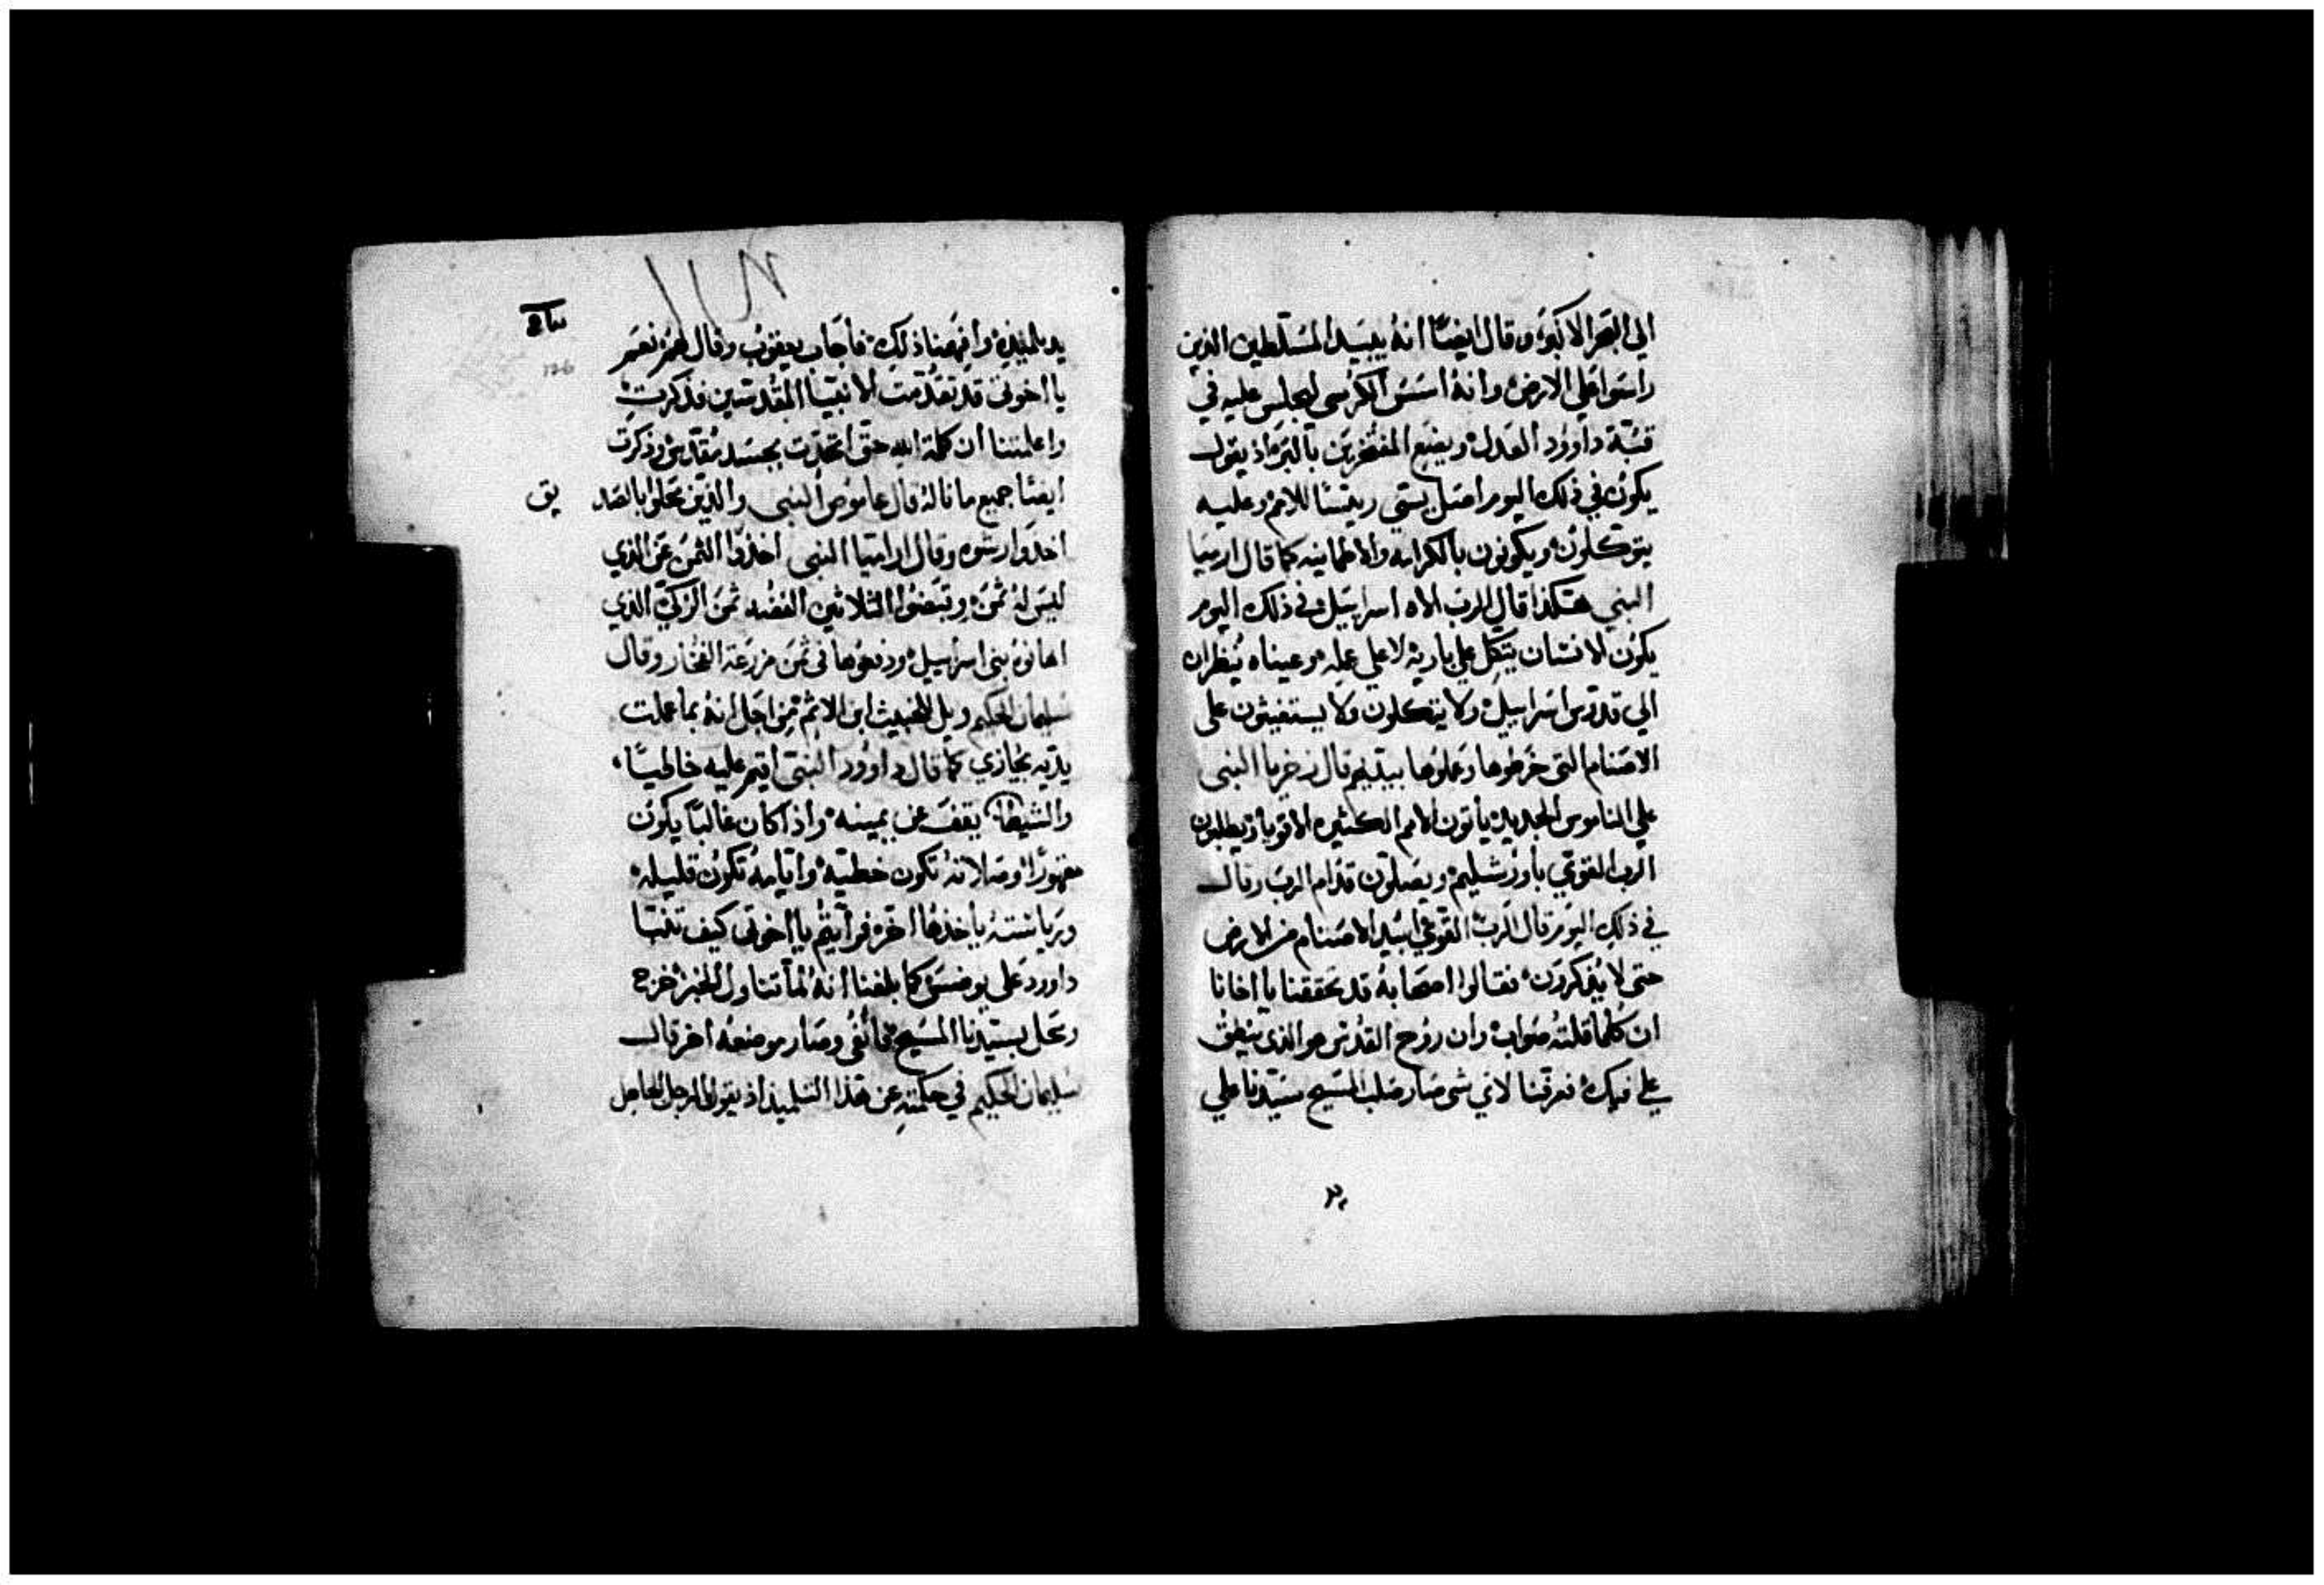 الي البحر الاكبر وقال ايضًا انهُ يبيد المسَلطين الذين
راسوا علي الارض وانهُ اسَسَ الكرسي ليجلس عليه في
قبّة داوود العدل ويضع المفتخرين بالبر اذ يقول
يكون في ذلك اليوم اصل يستي رييسًا للامم وعليه
يتوكلون ويكونون بالكرامه والاطمانينه كما قال ارميا
النبي هكذا قال الرب الاه اسراييل في ذلك اليوم
يكون الانسَان يتكل علي باريه لا علي عمله وعيناه ينظران
الي قدوس اسراييل ولا يتوكلون ولا يستغيثون علي
الاصَنام التي خرطوها وعملوها بيديهم قال زخريا النبي
علي الناموس الجديد ياتون الامم الكثيره الاقويا ويطلبون
الرب القوي باورشليم ويصَلون قدام الرب وقال
في ذلك اليوم قال الرب القوي ابيد الاصنام من الارض
حتي لا يذكرون فقالوا اصحَابهُ قد تحققنا يا اخانا
ان كلما قلته صواب وان روح القدس هو الذي ينطق
علي فيك فعرفنا لاي شي صَار صَلب المسَيح سَيدنا علي
يد تلميذه وافهمنا ذلك فاجاب يعقوب وقال لهم نعم
يا اخوتي قد تقدمت الانبيا المقدسين فذكرت
واعلمتنا ان كلمة الله حق اتحدت بجسَد مقدس وذكرت
ايضًا جميع ما ناله قال عاموص النبي والذين عملوا بالصَد
يق
اخذوا رشوه وقال ارميا النبي اخذوا الثمن عن الذي
ليس له ثمن وقبضوا الثلاثين الفضه ثمن الزكي الذي
اهانوه بني اسراييل ودفعوها في ثمن مزرعة الفخار وقال
سليمان الحكيم ويل للخبيث ابن الاثم من اجل انهُ بما عملت
يديه يجازي كما قال داوود النبي اقيم عليه خاطيًا
والشيطان يقف عن يمينه واذا كان غالبًا يكون
مقهورًا وصَلاته تكون خطيه وايامه تكون قليله
ورياسَته ياخذها اخر فرايتم يا اخوتي كيف تنبا
داوود علي يوضس كما بلغنا انهُ لما تناول الخبز خرج
وعمل بسيدنا المسَيح ما نُفي وصَار موضعه اخر قال
سليمان الحكيم في حكمته عن هذا التلميذ اذ يقول الرجل الجاهل